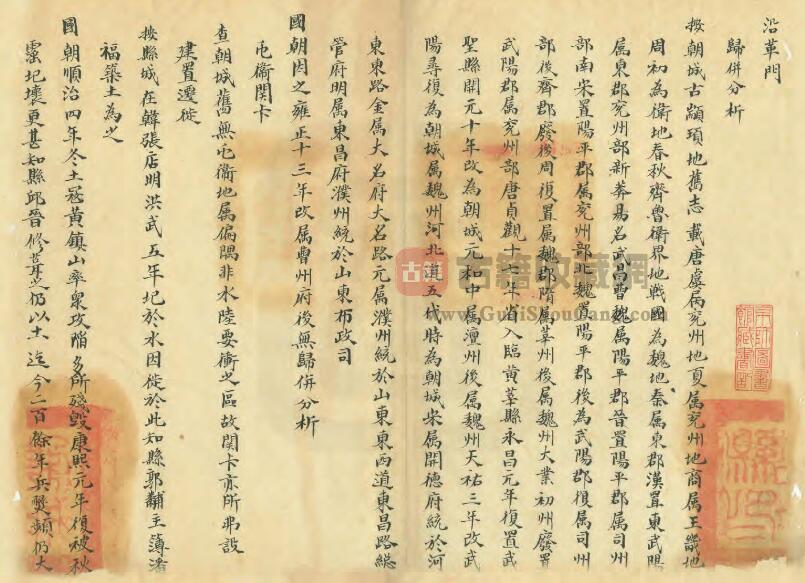 沿革門
歸併分析
按朝城古顓頊地舊志載唐虞属兖州地夏属兖州地商属王畿地
周初為衛地春秋齊魯衛界地戰國為魏地秦属東郡漢置東武陽
属東郡兖州部新莽易名武昌曹魏属陽平郡晉置陽平郡属司州
部南宋置陽平郡属兖州部北魏置陽平郡後為武陽郡復属司州
部後齊郡廢後周復置属魏郡隋属莘州後属魏州大業初州廢置
武陽郡属兖州部唐貞觀十七年省入臨黄莘縣永昌元年復置武
聖縣開元十年改為朝城元和中属澶州後属魏州天祐三年改武
陽尋復為朝城属魏州河北道五代時為朝城宋属開德府統於河
東東路金属大名府大名路元属濮州統於山東東西道東昌路總
管府明属東昌府濮州統於山東布政司
國朝因之雍正十三年改属曹州府後無歸併分析
屯衛関卡
查朝城舊無屯衛地属偏隅非水陸要衝之區故関卡亦所弗設
建置遷徙
按縣城在韓張店明洪武五年圮於水因徙於此知縣郭黼主簿潘
福築土為之
國朝順治四年冬土冦黄鎮山率衆攻陷多所殘毁康熙元年復被秋
霪圮壞更甚知縣邱晉修葺之仍以土迄今二百餘年兵燹頻仍大
古籍收藏网
www.GuJiShouCang.com